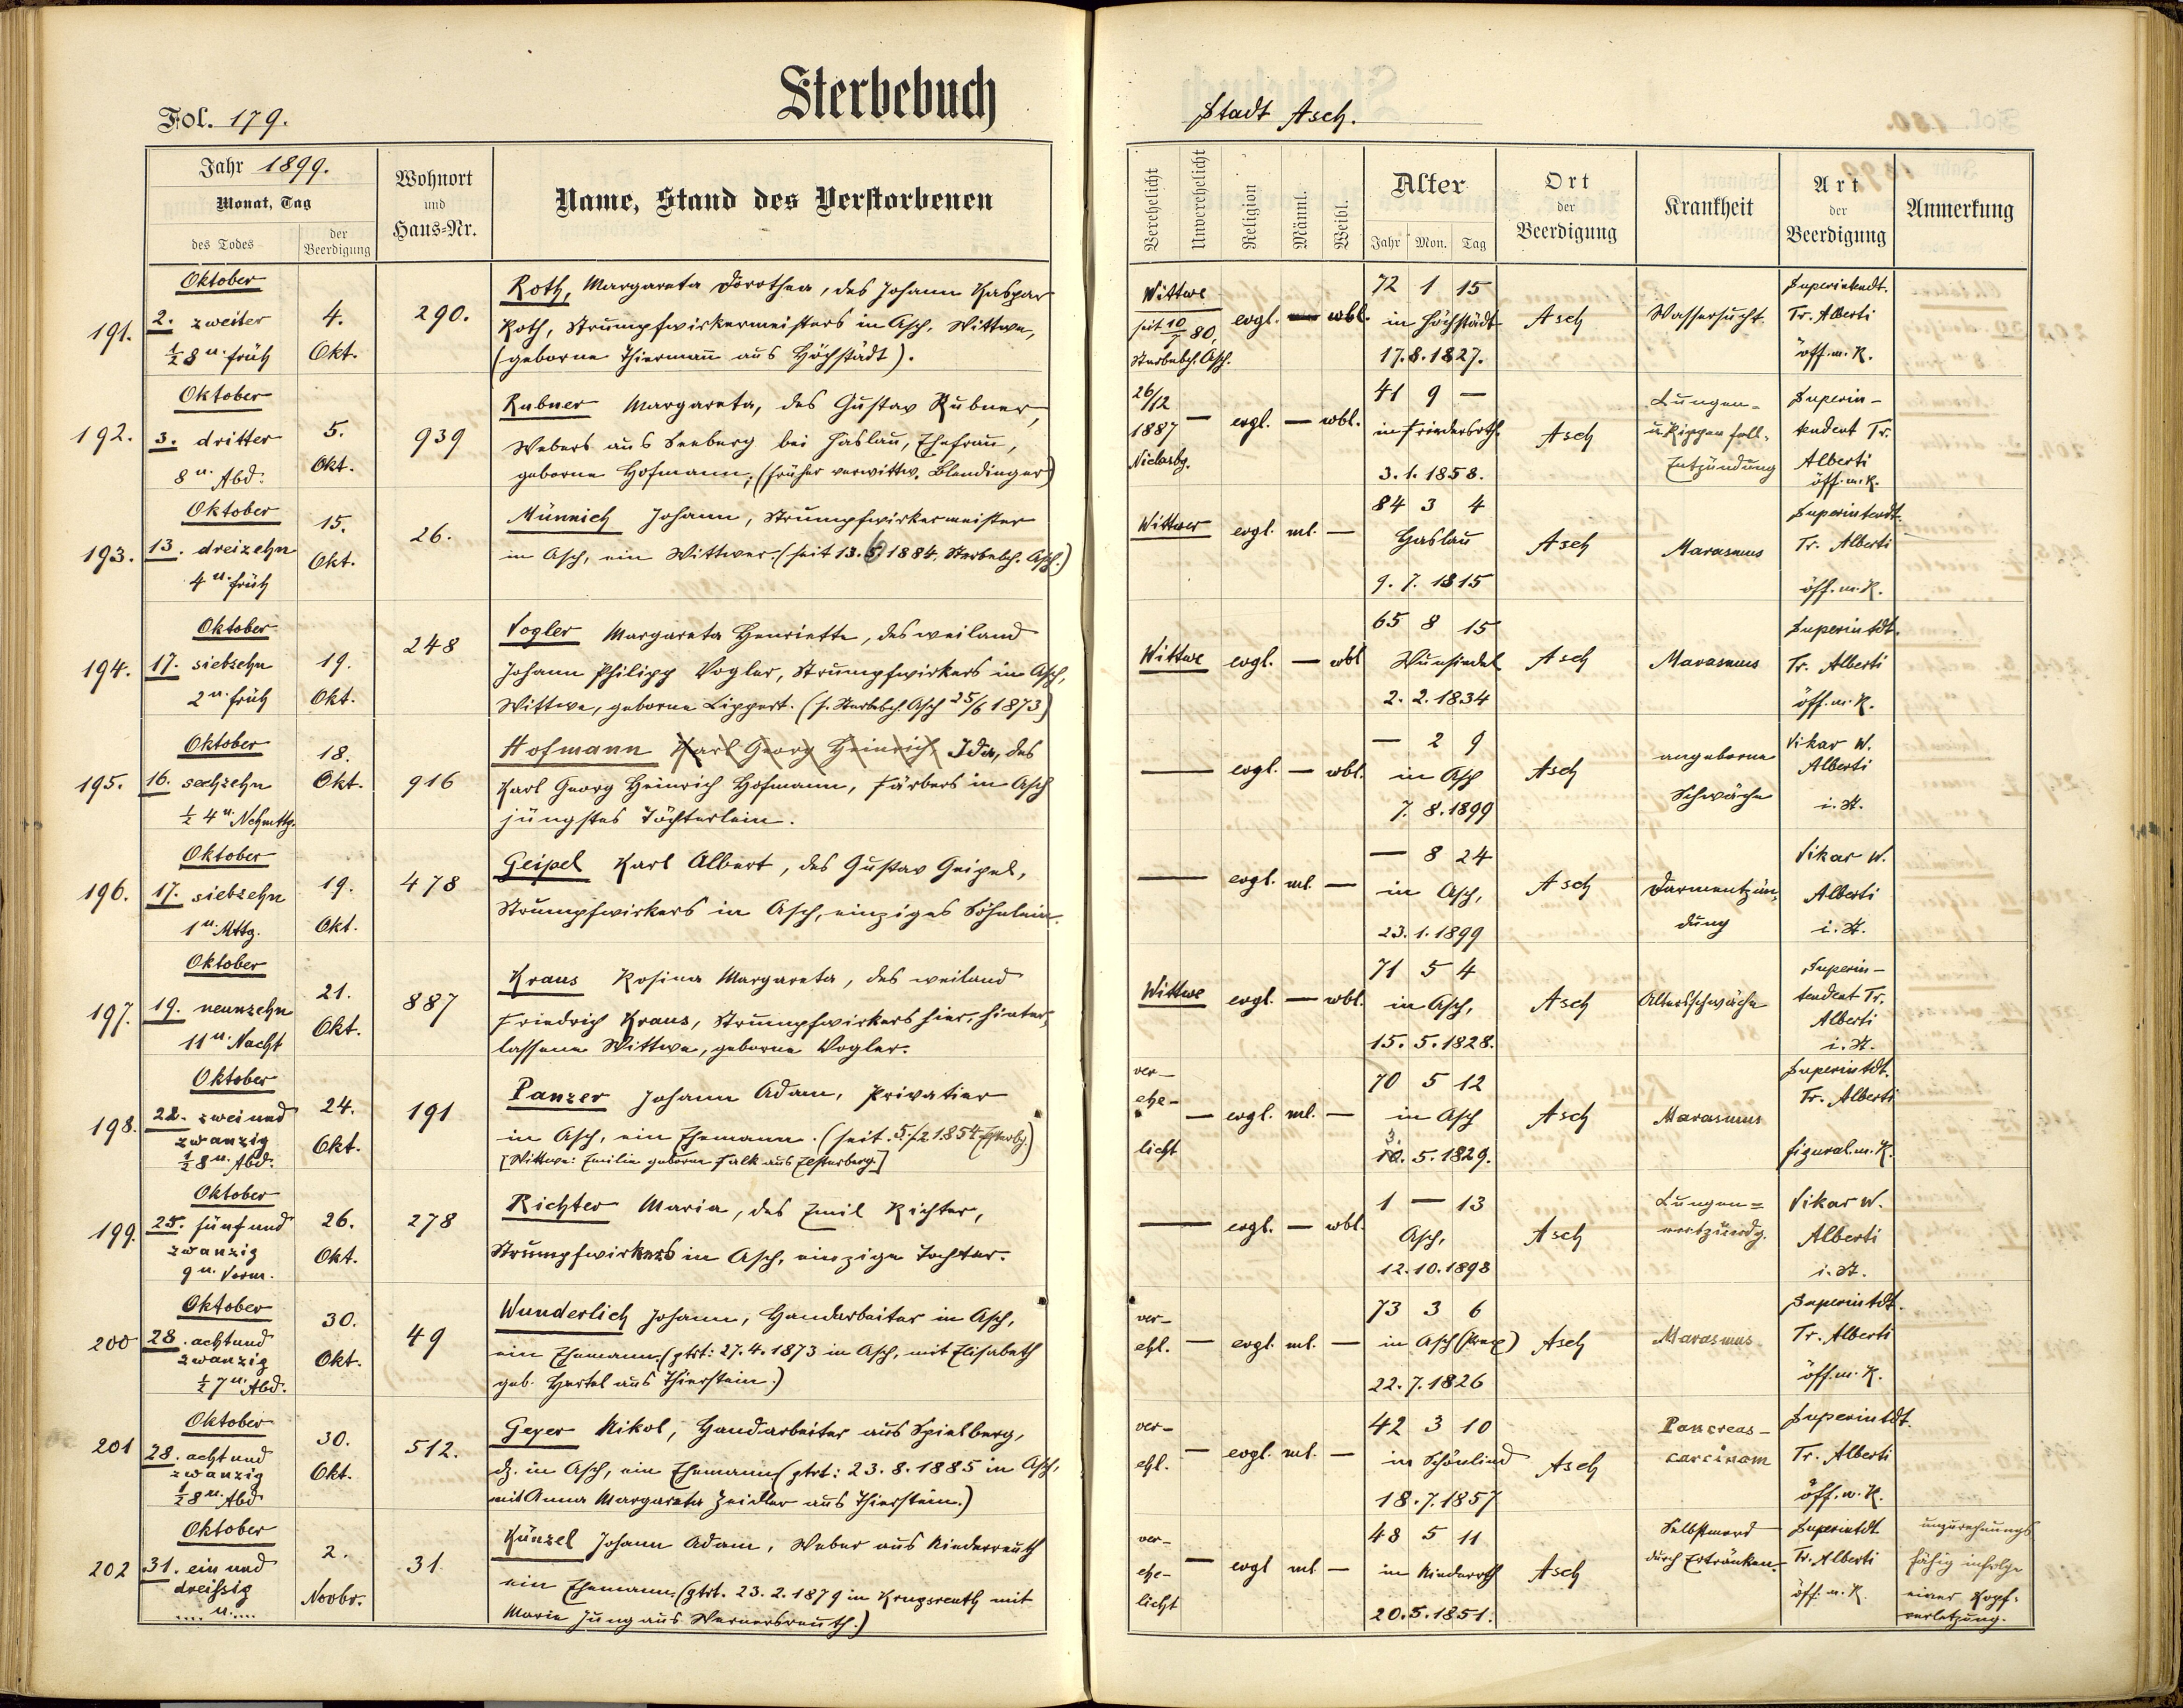 Fol. 179.
Sterbebuch
Jahr 1899.
Monat, Tag
des Todes
der Beerdigung
Wohnort
und
Haus-Nr.
Name, Stand des Verstorbenen
191.
Oktober
2. zweiter
½8 u. früh
4.
Okt.
290.
Roth, Margareta Dorothea, des Johann Kaspar
Roth, Strumpfwirkermeisters in Asch, Wittwe,
(geborne Thiermañ aus Höchstädt).
192.
Oktober
3. dritter
8 u. Abd.
5.
Okt.
939
Rubner Margareta, des Gustav Rubner,
Webers aus Seeberg bei Haslau, Ehefrau,
geborne Hofmann, (früher verwittw. Blendinger)
193.
Oktober
13. dreizehn
4 u. früh
15.
Okt.
26.
Münnich Johann, Strumpfwirkermeister
in Asch, ein Wittwer. (seit 13. 6 1884, Sterbebch. Asch.)
194.
Oktober
17. siebzehn
2 u. früh
19.
Okt.
248
Vogler Margareta Henriette, des weiland
Johann Philipp Vogler, Strumpfwirkers in Asch,
Wittwe, geborne Lippert. (s. Sterbebch. Asch 25/6 1873)
195.
Oktober
16. sechzehn
½ 4 u. Nchmttg.
18.
Okt.
916
Hofmann Karl Georg Heinrich Ida, des
Karl Georg Heinrich Hofmann, Färbers in Asch
jüngstes Töchterlein.
196.
Oktober
17. siebzehn
1 u. Mttg.
19.
Okt.
478
Geipel Karl Albert, des Gustav Geipel,
Strumpfwirkers in Asch, einziges Söhnlein.
197.
Oktober
19. neunzehn
11 u. Nacht
21.
Okt.
887
Kraus Rosina Margareta, des weiland
Friedrich Kraus, Strumpfwirkers hier, hinter-
lassene Wittwe, geborne Vogler.
198.
Oktober
22. zwei und
zwanzig
½8 u. Abd.
24.
Okt.
191
Panzer Johann Adam, Privatier
in Asch, ein Ehemann. (seit 5./2 1854
[Wittwe: Emilie geborne Falk aus Elsterberg]
199.
Oktober
25. fünf und
zwanzig
9 u. Vorm.
26.
Okt.
278
Richter Maria, des Emil Richter,
Strumpfwirkers in Asch, einzige Tochter.
200
Oktober
28. acht und
zwanzig
½ 7 u. Abd.
30.
Okt.
49
Wunderlich Johann, Handarbeiter in Asch,
ein Ehemann. (gtrt: 27. 4. 1873 in Asch, mit Elisabeth
geb. Hertel aus Thierstein.)
201
Oktober
28. acht und
zwanzig
½8 u. Abd
30.
Okt.
512.
Geyer Nikol, Handarbeiter aus Spielberg,
dz. in Asch, ein Ehemann (gtrt: 23. 8. 1885 in Asch,
mit Anna Margareta Zeidler aus Thierstein.)
202
Oktober
31. ein und
dreißig
.... u. ....
2.
Novbr.
31.
Künzel Johann Adam, Weber aus Niederreuth
ein Ehemann. (gtrt. 23. 2. 1879 in Krugsreuth mit
Marie Jung aus Wernersreuth.)
Stadt Asch.
Verehelicht
Unverehelicht
Religion
Männl.
Weibl.
Alter
Jahr Mon. Tag
Ort
der
Beerdigung
Krankheit
Art
der
Beerdigung
Anmerkung
Wittwe
seit 10/7 80,
Sterbebch. Asch.
evgl. — wbl.
72 1 15
in Höchstädt
17. 8. 1827.
Asch
Wassersucht.
Superintendt.
Tr. Alberti
öff. m. K.
26/12
1887
—
evgl. — wbl.
41 9 —
in Friedersrth.
3. 1. 1858.
Asch
Lungen-
u. Rippenfell-
Entzündung
Superin-
tendent Tr.
Alberti
öff. m. K.
Wittwer
evgl. ml. —
84 3 4
Haslau
9. 7. 1815
Asch
Marasmus
Superintendt.
Tr. Alberti
öff. m. K.
Wittwe
evgl. — wbl
65 8 15
Wunsiedel
2. 2. 1834
Asch
Marasmus
Superintdt.
Tr. Alberti
öff. m. K.
— evgl. — wbl.
— 2 9
in Asch
7. 8. 1899
Asch
angeborne
Schwäche
Vikar W.
Alberti
i. St.
— evgl. ml. —
— 8 24
in Asch,
23. 1. 1899
Asch
Darmentzün-
dung
Vikar W.
Alberti
i. St.
Wittwe
evgl. — wbl.
71 5 4
in Asch,
15. 5. 1828.
Asch
Altersschwäche
Superin-
tendent Tr.
Alberti
i. St.
ver-
ehe-
licht
— evgl. ml. —
70 5 12
in Asch
10. 5. 1829.
Asch
Marasmus
Superintdt.
Tr. Alberti
figural. m. K.
— evgl. — wbl.
1 — 13
Asch,
12. 10. 1898
Asch
Lungen-
entzündg.
Vikar W.
Alberti
i. St.
ver-
ehl.
— evgl. ml. —
73 3 6
in Asch
22. 7. 1826
Asch
Marasmus
Superintdt.
Tr. Alberti
öff. m. K.
ver-
ehl.
— evgl. ml. —
42 3 10
in Schönlind
18. 7. 1857
Asch
Pancreas-
carcinom
Superintdt.
Tr. Alberti
öff. m. K.
ver-
ehe-
licht
— evgl ml —
48 5 11
in Niederrth
20. 5. 1851.
Asch
Selbstmord
durch Ertränken.
Superintdt
Tr. Alberti
öff. m. K.
unzurechnungs
fähig infolge
einer Kopf-
verletzung.